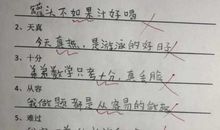 罐头不如果汁好喝
2、天真
今天真热,是游泳的好日子
3、十分
弟弟数学只考十分,真丢脸
4、从容
我做题都是从容易的做起
5、难过